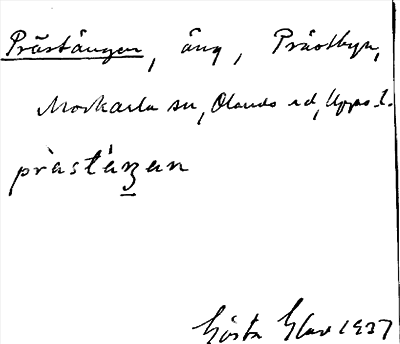 Prästängen, äng, Prästbyn,
Morkarla sn, Olands hd, Upps. l.
prästäŋen
Gösta Elav 1937